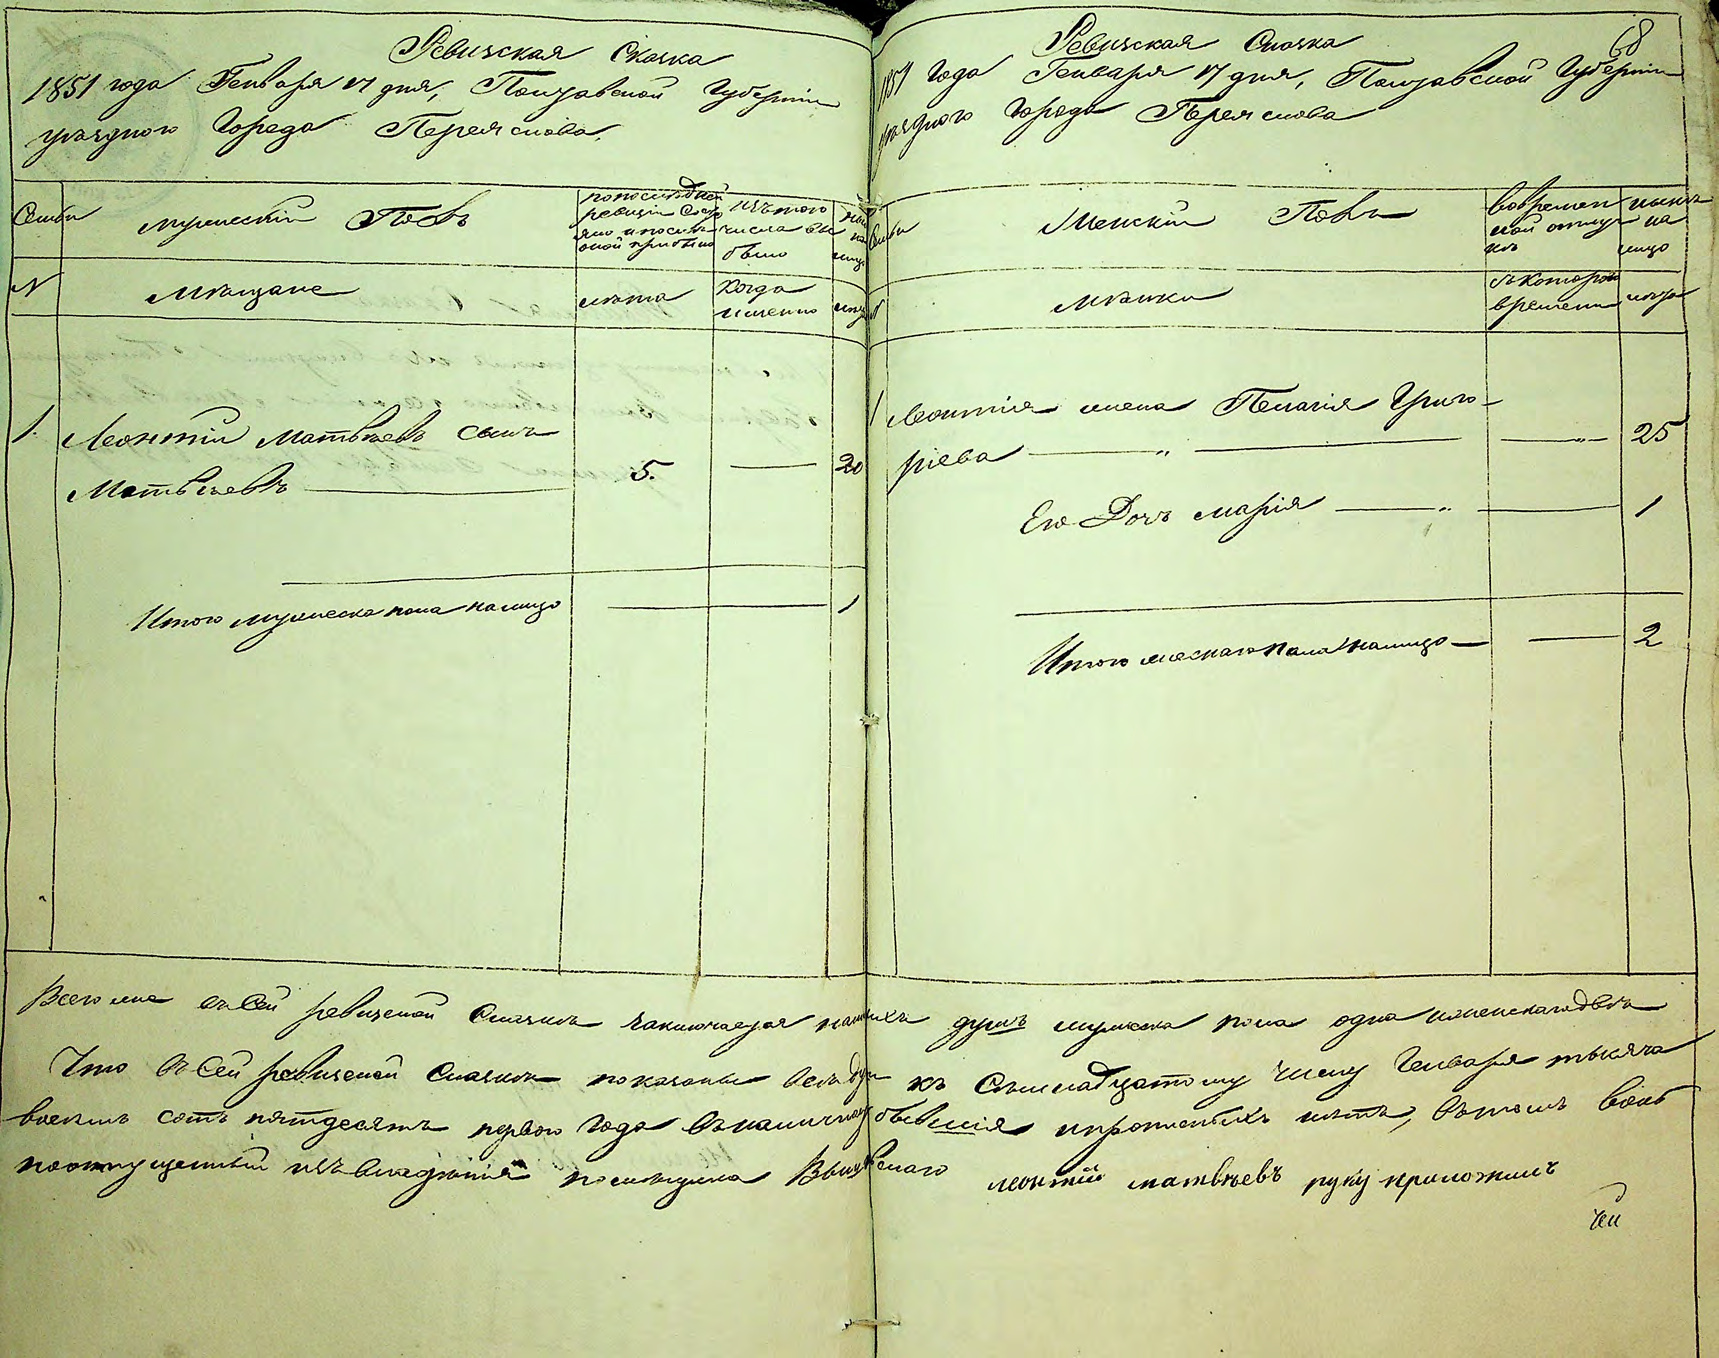 Ревизская Сказка
1851 года Генваря 17 дня, Полтавской Губернии
уезднаго Города Переяслова.
Семьи
мужеский Полъ
по последней ревизии состояло и после оной прибыло
изъ того числа выбыло
ныне на лицо
№
мещане
лета
Когда именно
лета
1. Леонтий Матвеевъ сынъ
Матвеевъ 5. 20
Итого мужеска пола налицо 1
68
Ревизская Сказка
1851 Года Генваря 17 дня, Полтавской Губернии
уезднаго Города Переяслова
Семьи
Женский Полъ
во временной отлучке
ныне на лицо
№
мещанки
съ котораго времени
лета
1 Леонтия жена Пелагия Григо-
риева " " 25
Его Дочь мария " 1
Итого женскаго пола налицо 2
Всего же въ сей ревизской Сказке заключается наличныхъ душъ мужеска пола одна и женскаго две
Что въ Сей ревизской Сказке показаны все души къ Семнадцатому Числу Генваря тысяча
восемь сотъ пятдесятъ перваго Года въ наличности бывшия и прописныхъ нетъ, въ томъ
по отпущенный изъ владения помещика леонтий матвеевъ руку приложилъ